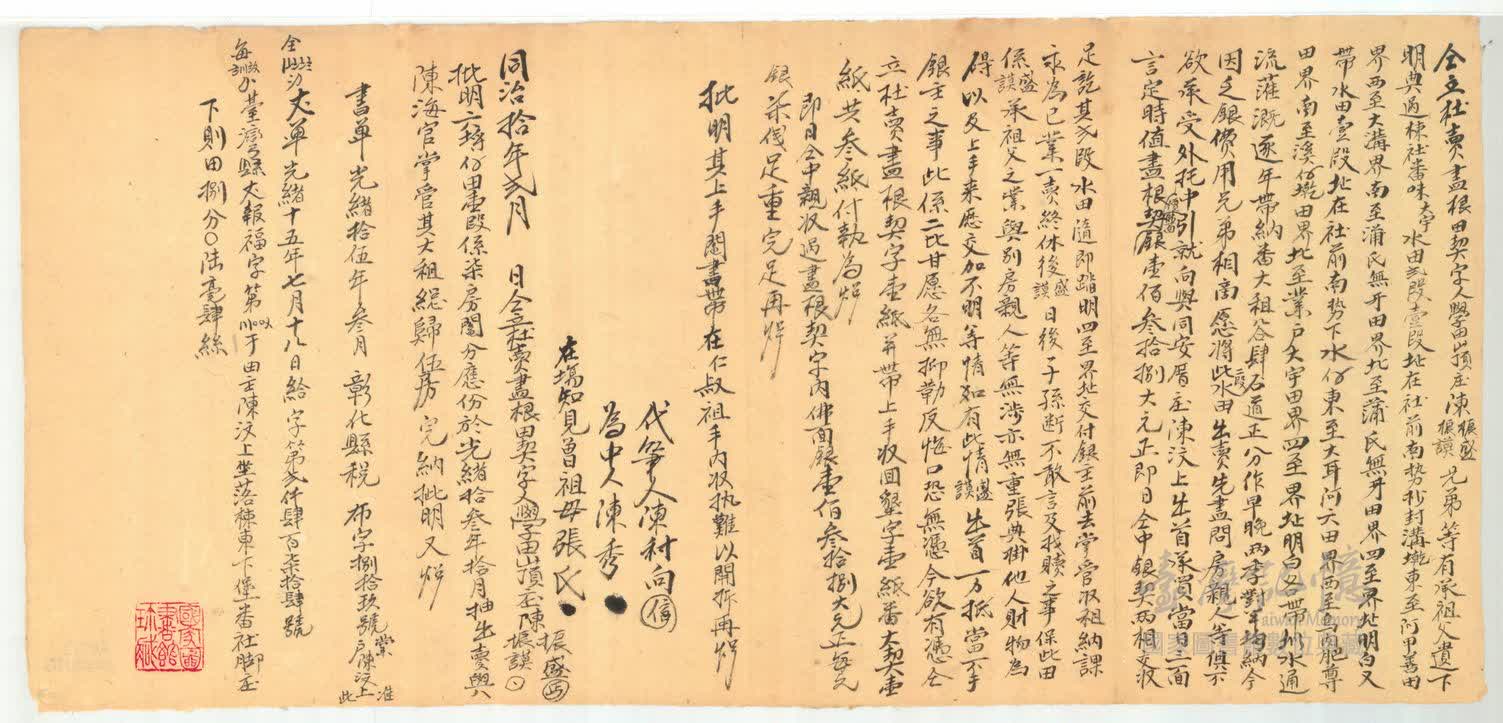 仝立杜賣盡根田契字人學田嵿庄陳振盛振謨兄弟等有承祖父遺下
明典過棟社番味大宇水田貳段壹段址在社前南势杓封溝墘東至阿甲善田
界西至大溝界南至蒲氏無歹田界北至蒲氏無歹田界四至界址明白又
帶水田壹段址在社前南势下水份東至大耳问六田界西至烏肥尊
田界南至溪仔墘田界北至業户大宇田界四至界址明白各帶圳水通
流灌溉逐年帶納番大租谷肆石道正分作早晚两季對半均納今
因乏銀費用兄弟相商愿將此水田二段出賣先盡問房親人等俱不
欲承受外托中引就向與同安厝庄陳汶上出首承買當日三面
言定時值盡根契銀壹佰叁拾捌大元正即日仝中銀契两相交收
足訖其貳段水田隨即踏明四至界址交付銀主前去掌管收租納課
永為己業一賣終休後日後盛謨子孫断不敢言及找贖之事保此田
係盛謨承祖父之業與别房親人等無涉亦無重張典掛他人財物為
碍以及上手来歷交加不明等情如有此情盛謨出首一力抵當不干
銀主之事此係二比甘愿各無抑勒反悔口恐無憑今欲有憑仝
立杜賣盡根契字壹紙并帶上手收囬墾字壹紙番大契壹
紙共叁紙付執為炤
即日仝中親收過盡根契字內佛面銀壹佰叁拾捌大元正每元
銀柒伐足重完足再炤
批明其上手鬮書帶在仁叔祖手内收执難以開拆再炉
代筆人陳利向
為中人陳秀
在塲知見曾祖母張氏
同治拾年貳月 日仝立杜賣盡根田契字人學田嵿庄陳振盛振謨
批明六塅仔田壹段係柒房鬮分應份於光緒拾叁年拾月抽出賣與
陳海官掌管其大租総歸伍房完納批明又炉
書单光緒拾伍年叁月彰化縣税布字捌拾玖號業户陳汶上准此
丈单光緒十五年七月十八日給字第貳仟肆百柒拾肆號
臺灣縣丈報福字第 于田主陳汶上坐落棟東下堡番社脚庄
下則田捌分〇陸毫肆絲
國家圖書館珍藏
臺灣記憶
Taiwan Memory
國家圖書館數位典藏